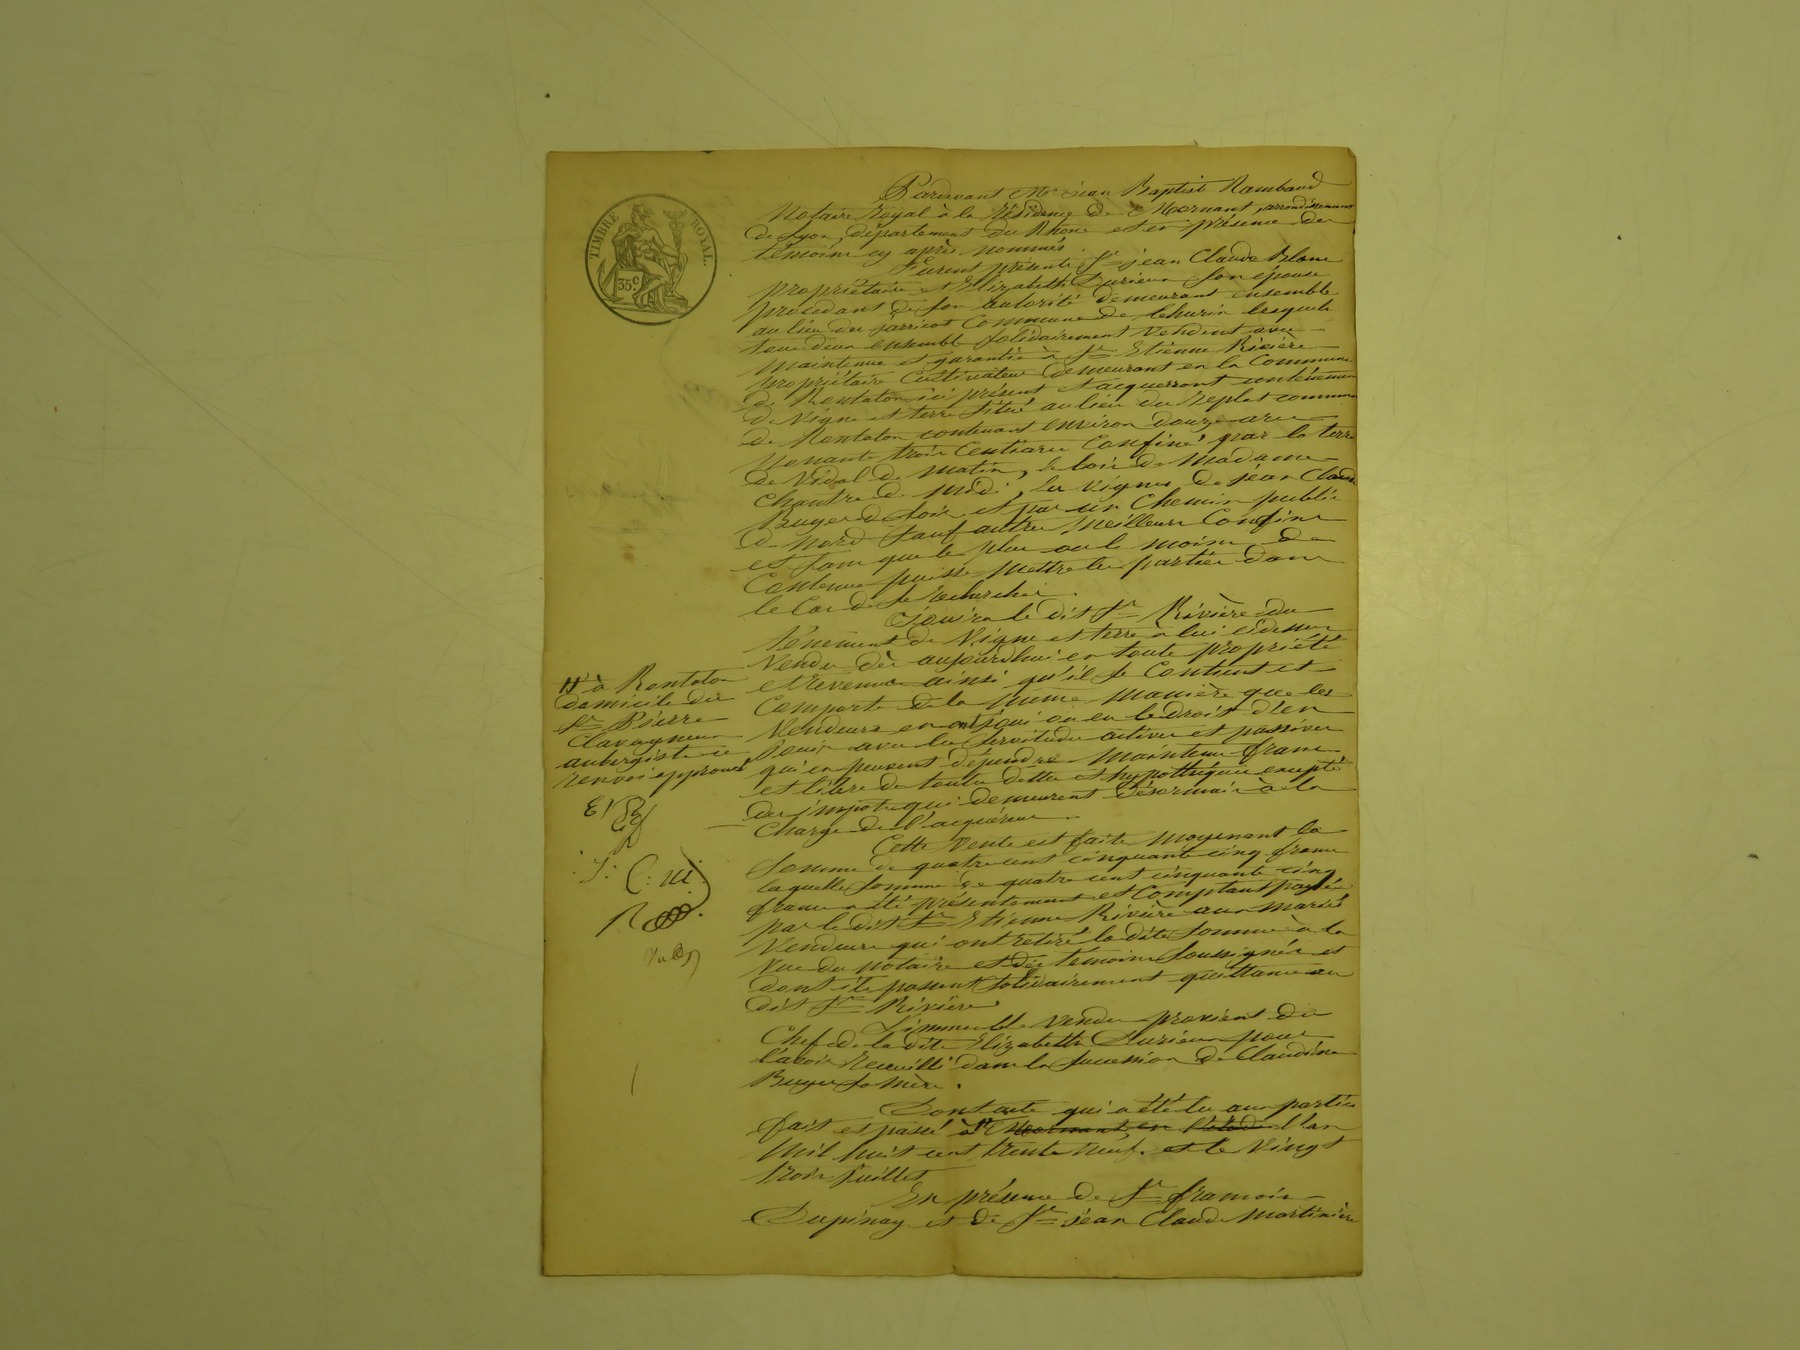 TIMBRE ROYAL.
35c.
Pardevant Me jean Baptiste Rambaud
Notaire Royal à la résidence de Mornant, arrondissement
de Lyon, département du Rhône et en présence des
témoins cy après nommés.
Furent présents Sr jean Claude Blanc
propriétaire et Elizabeth Durieux son épouse
procédant de son autorité demeurant ensemble
au lieu du jarricot Commune de thurin lesquels
tous deux ensemble solidairement vendent avec
maintenue et garantie à Sr Etienne Rivière
propriétaire Cultivateur demeurant en la Commune
de Rontalon ici présent et acquerrant un ténement
de Vigne et terre situé au lieu du Replat commune
de Rontalon contenant environ douze ares
nonante trois Centiares Confiné par la terre
de Vidal de matin, le bois de Madame
Chantre de midi, les vignes de jean Claude
Buyer de soir et par un Chemin public
de nord sauf autres meilleurs Confins
et sans que le plus ou le moins de
Contenue puisse mettre les parties dans
le Cas de se rechercher.
Jouira le dit Sr Rivière du
ténement de Vigne et terre à lui cidessus
Vendu dès aujourdhui en toute propriété
et revenus ainsi qu'il se Contient et
Comporte de la même manière que les
Vendeurs en ont joui ou eu le droit d'en
jouir avec les servitudes actives et passives
qui en peuvent dépendre maintenu franc
et libre de toutes dettes et hypothéques excepté
des impots qui demeurent désormais à la
Charge de l'acquéreur.
Cette Vente est faite moyenant la
somme de quatre cent cinquante cinq francs
laquelle somme de quatre cent cinquante cinq
francs a été présentement et Comptant payée
par le dit Sr Etienne Rivière aux mariés
Vendeurs qui ont retiré la dite somme à la
vue du notaire et des témoins soussignés et
dont ils passent solidairement quittance au
dit Sr Rivière
L'immeuble vendu provient du
Chef de la dite Elizabeth Durieux pour
l'avoir recueilli dans la succession de Claudine
Buyer sa mère.
Dont acte qui a été lu aux parties
fait et passé à Mornant en l'étude l'an
Mil huit cent trente neuf et le Vingt
trois juillet
En présence de Sr francois
Dupinay et de Sr jean Claude Martinière
à Rontalon
domicile du
Sr Pierre
Clavagneux
aubergiste ici
renvoi approuvé